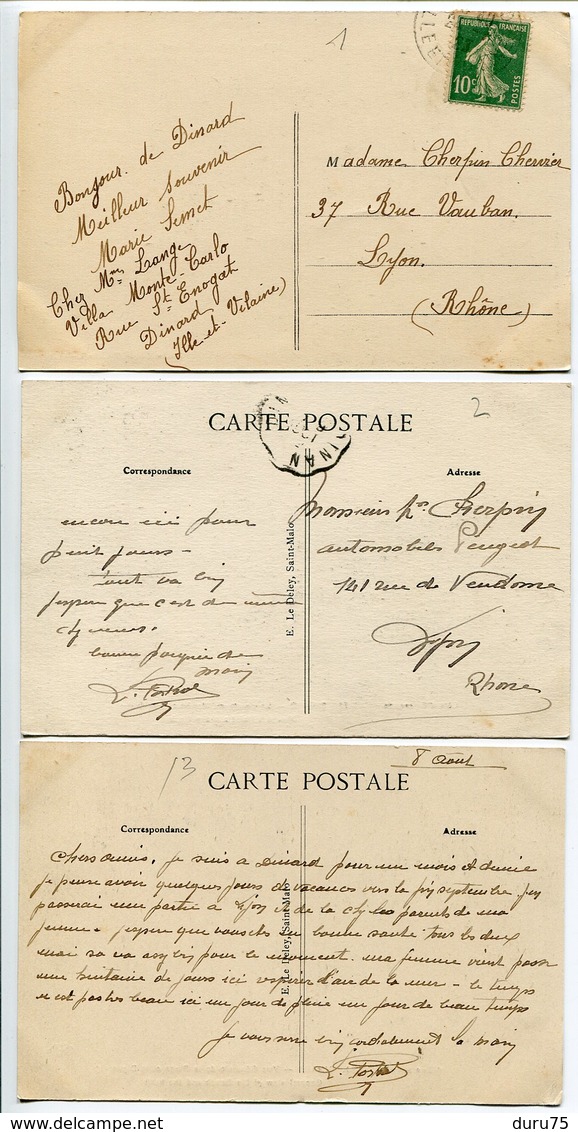 1
REPUBLIQUE FRANÇAISE
10c POSTES
Bonjour de Dinard
Meilleur Souvenir
Marie Semet
Chez Mme Lange
Villa Monte Carlo
Rue St Enogat
Dinard
(Ille-et-Vilaine)
Madame Cherpin Chervier
37 Rue Vauban.
Lyon.
(Rhône)
2
CARTE POSTALE
DINAN
Correspondance
Adresse
encore ici pour
huit jours -
tout va bien
j'espère que c'est de même
chez vous.
bonne poignée de
main
E. Le Deley, Saint-Malo
Monsieur Cherpin
automobiles Peugeot
141 rue de Vendome
Lyon
Rhone
3
8 Aout
CARTE POSTALE
Correspondance
Adresse
Chers amis, je suis a Dinard pour un mois et demie
je pense avoir quelques jours de vacances vers la fin septembre j'en
passerai une partie a Lyon et de la chez les parents de ma
femme - j'espère que vous êtes en bonne santé tous les deux
moi sa va assez bien pour le moment. ma femme vient passer
une huitaine de jours ici respirer l'air de la mer - le temps
n'est pas très beau ici un jour de pluie un jour de beau temps
je vous serre bien cordialement la main
E. Le Deley, Saint-Malo
© duru75